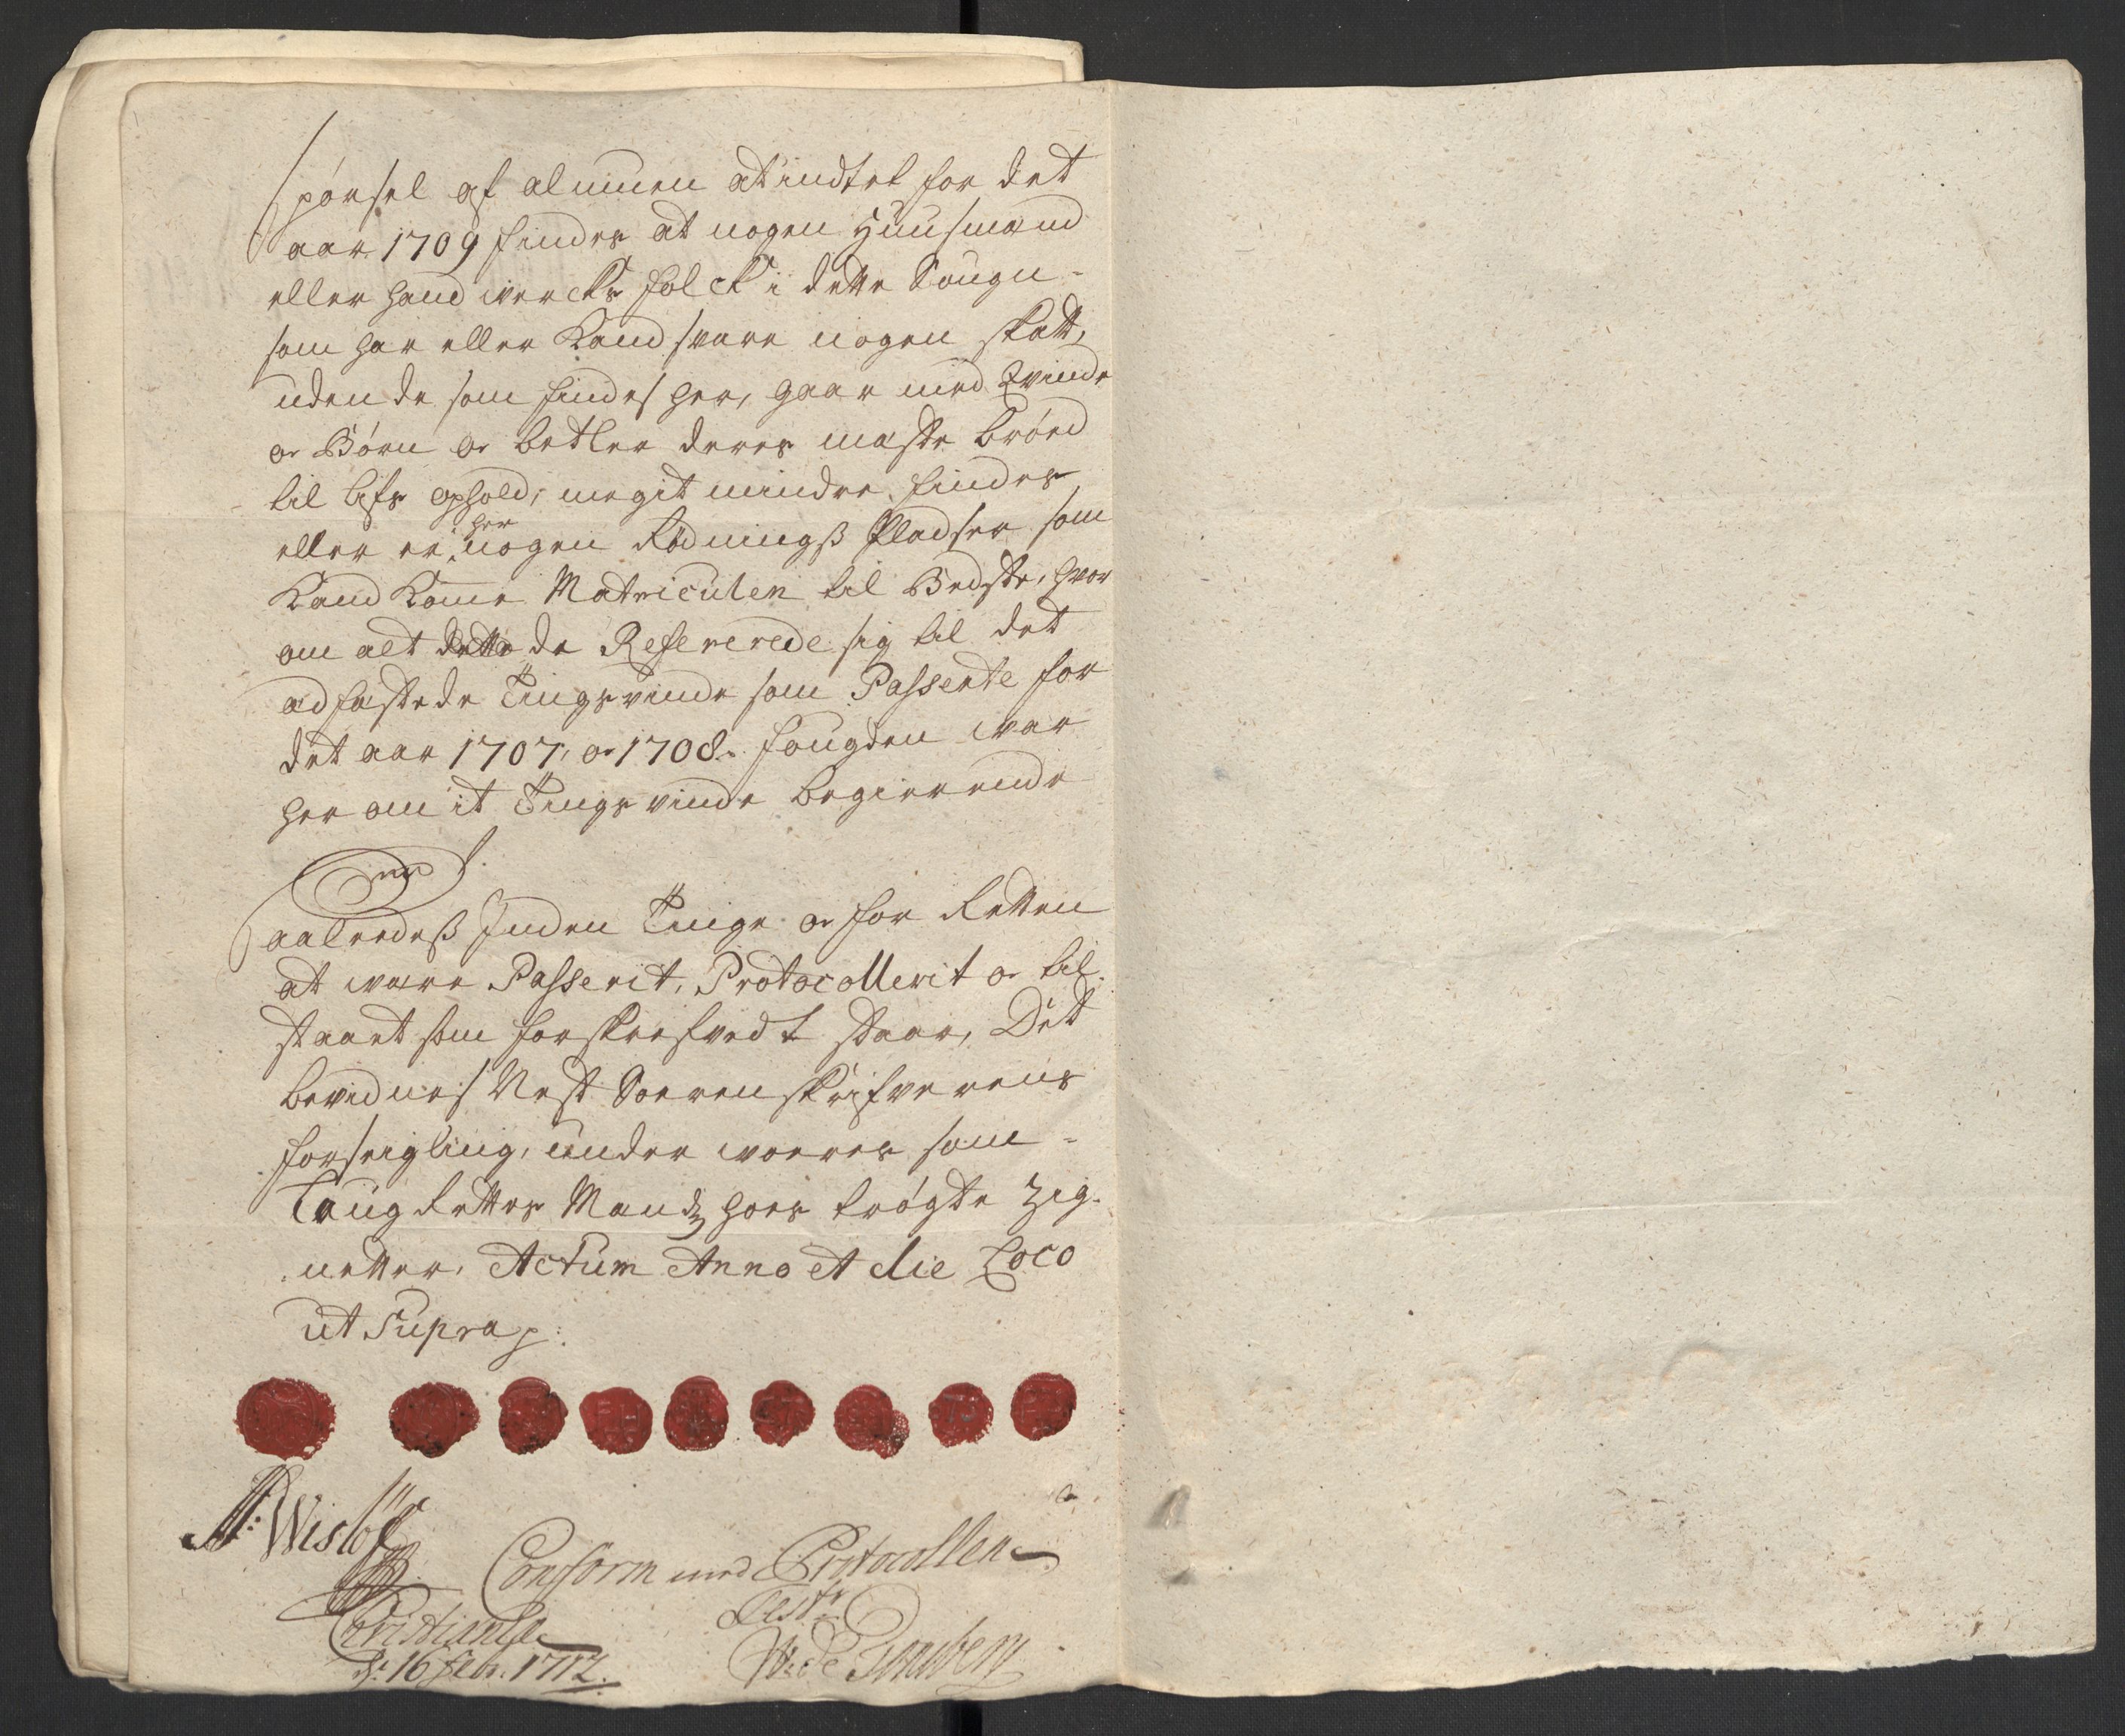 Spørsel af almuen at indtet for det
aar 1709 findes at nogen Huusmænd
eller hand wercks folck i dette Sougn
som har eller Kand svare nogen skatt,
uden de som findes her, gaar med Qvinde
og Børn og betler deres mæste brød
til lifs ophold, megit mindre findes
eller er her nogen Rødningß Pladser som
Kand Komme Matriculen til Bedste, hvor
om alt dette de Refererede sig til det
ad fastede Tingsvinde som Passerte for
det aar 1707, og 1708. fougden war
her om it Tingsvinde begierende
Saaledeß Inden Tinge og for Retten
at were Passerit, Protocollerit og til
staaet som forskrefvedt staar, Det
bevidnes Nest Soerenskrifverens
forseigling, under woeres som
Laug Rettes Mænds hoes trøgte Zig-
netter. Actum Anno et die Loco
ut Supra
Wisløf
Conform med Protocollen
Test:
Christiansæ
d: 16 Feb. 1712.